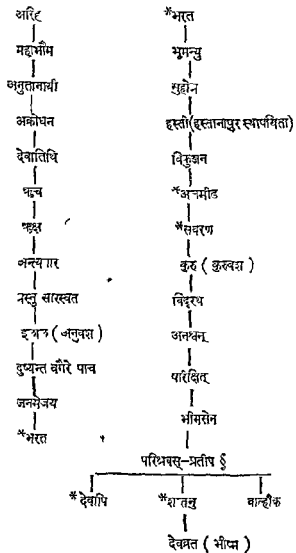 अरिह
महाभौम
अनुतानायी
अकोधन
देवातिथि
ऋच
ऋक्ष
अन्त्यनार
त्रस्नु सारस्वत
इलिन (अनुवश)
दुष्यन्त वगैरे पाच
जनमेजय
*भरत
*भरत
भूमन्यु
सुहोत्र
हस्ती (हस्तानापुर स्थापयिता)
विकुञ्जन
*अचमीड
*सवरण
कुरु (कुरुवश)
विदूरथ
अनश्वन्
पारिक्षित्
भीमसेन
परिश्रवस्-प्रतीप §
*देवापि *शन्तनु वाल्हीक
देवव्रत (भीष्म)